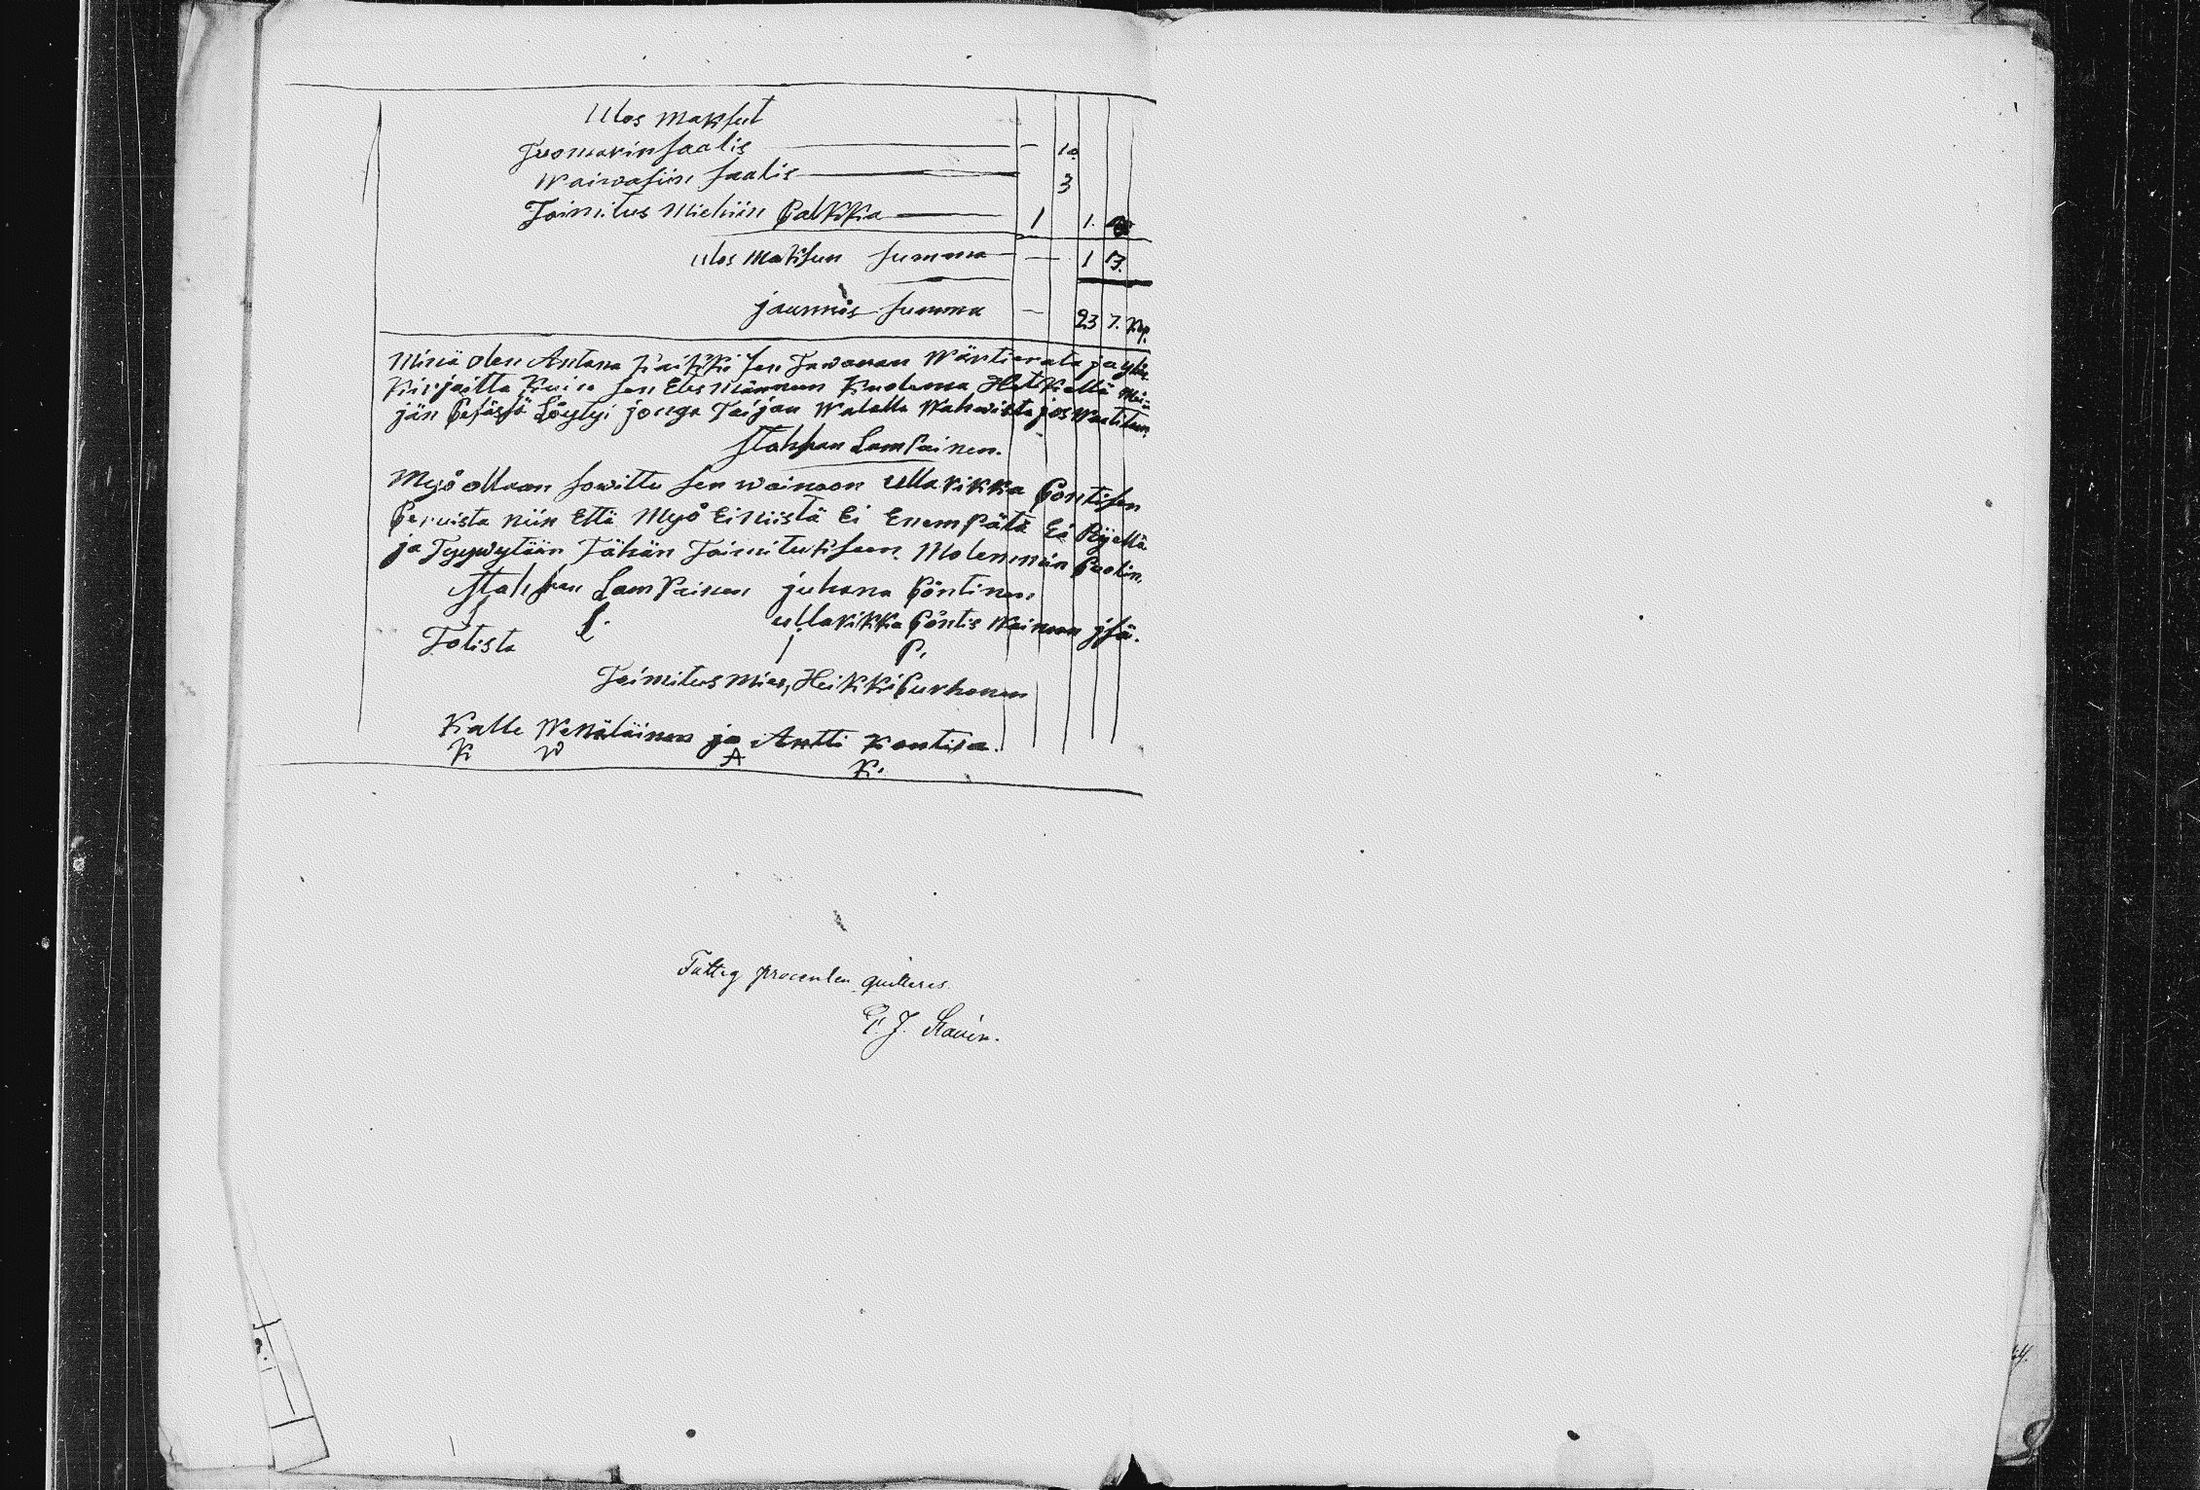 Ulos Maksut
Tuomarin saalis — 10
Waiwasiin saalis 3
Toimitus Miehiin Palkka 1 1.
Ulos Maksun summa — 1 13.
jaannös summa — 23 7. Kop.
Minä olen Antana kaikki sen Tawaran Wärtierata ja ylös
Kirjoitta Kuin sen Eles Männen Kuolema Hetkellä Mei
jän Pesässä Löytyi jonga Taijan Walalla Wahwista jos Waatitaan
Stahfan LamPainen.
Myö ollaan sowittu sen wainaan Ullakikka Pöntisen
Peruista niin Että Myö Ei niistä Ei EnemPätä Ei Ryetä
ja Tyywytään Tähän Toimitukseen. Molemmin Puolin,
Stahfan LamPainen juhana Pöntinen
S L. ullakikka Pöntis Wainaan jsä.
Totista j P.
Toimitus Mies, Heikki Purhonen
Kalle Wenäläinen ja Antti Kontisa.
K W A K.
Fattig procenten quitteras
P. J. Stavén.